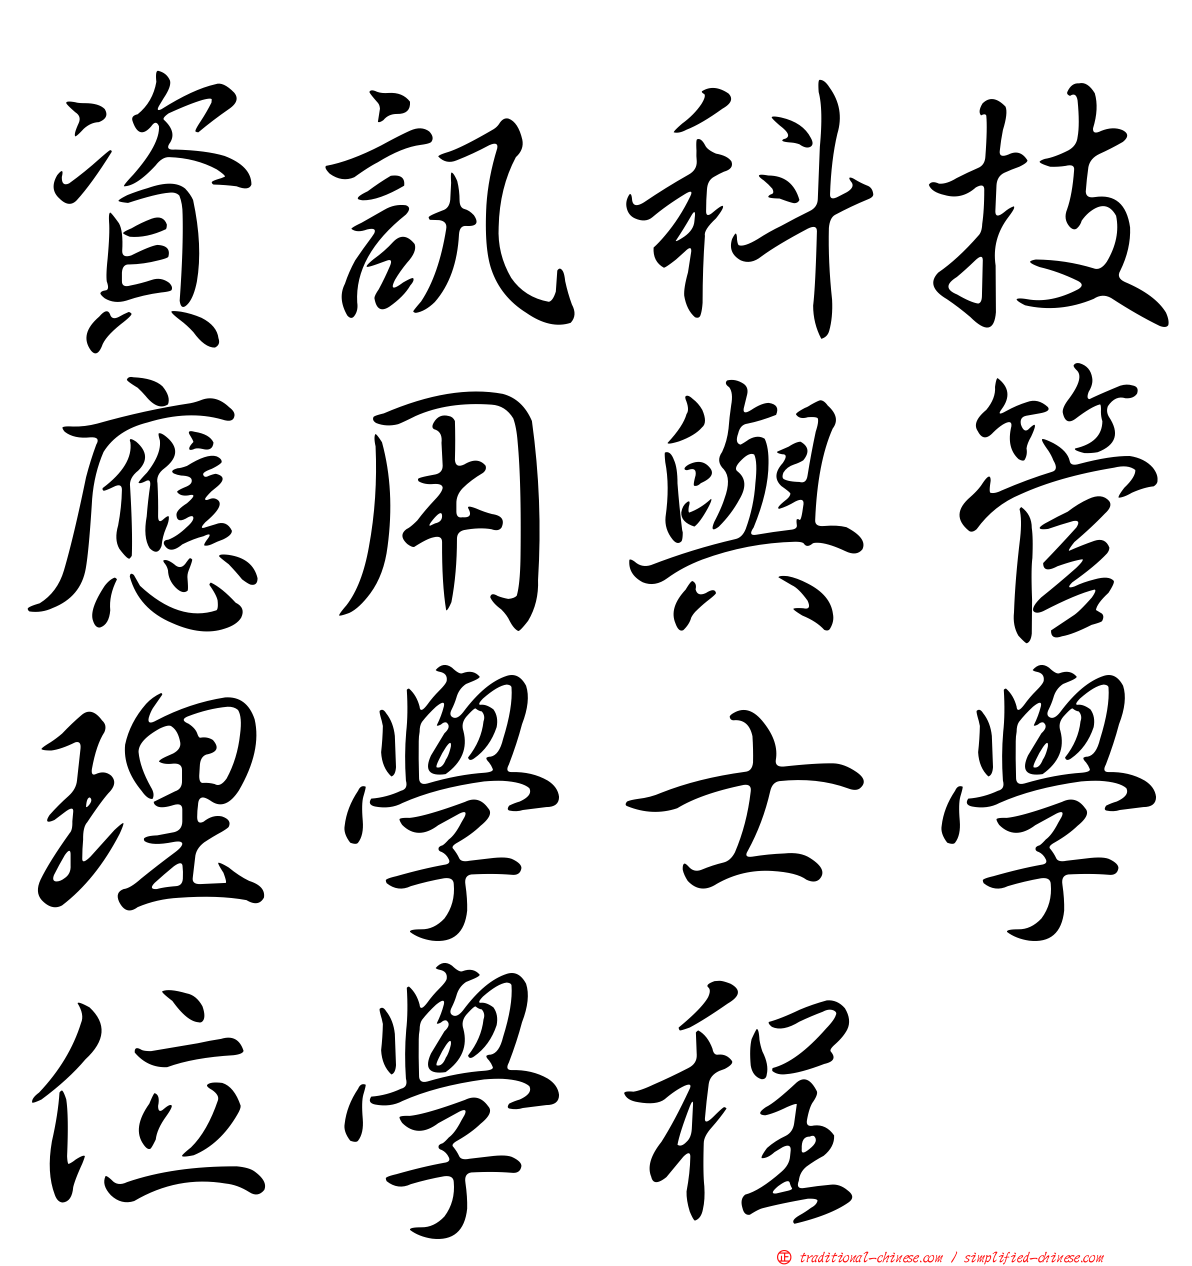 資訊科技
應用與管
理學士學
位學程
正 traditional-chinese.com / simplified-chinese.com